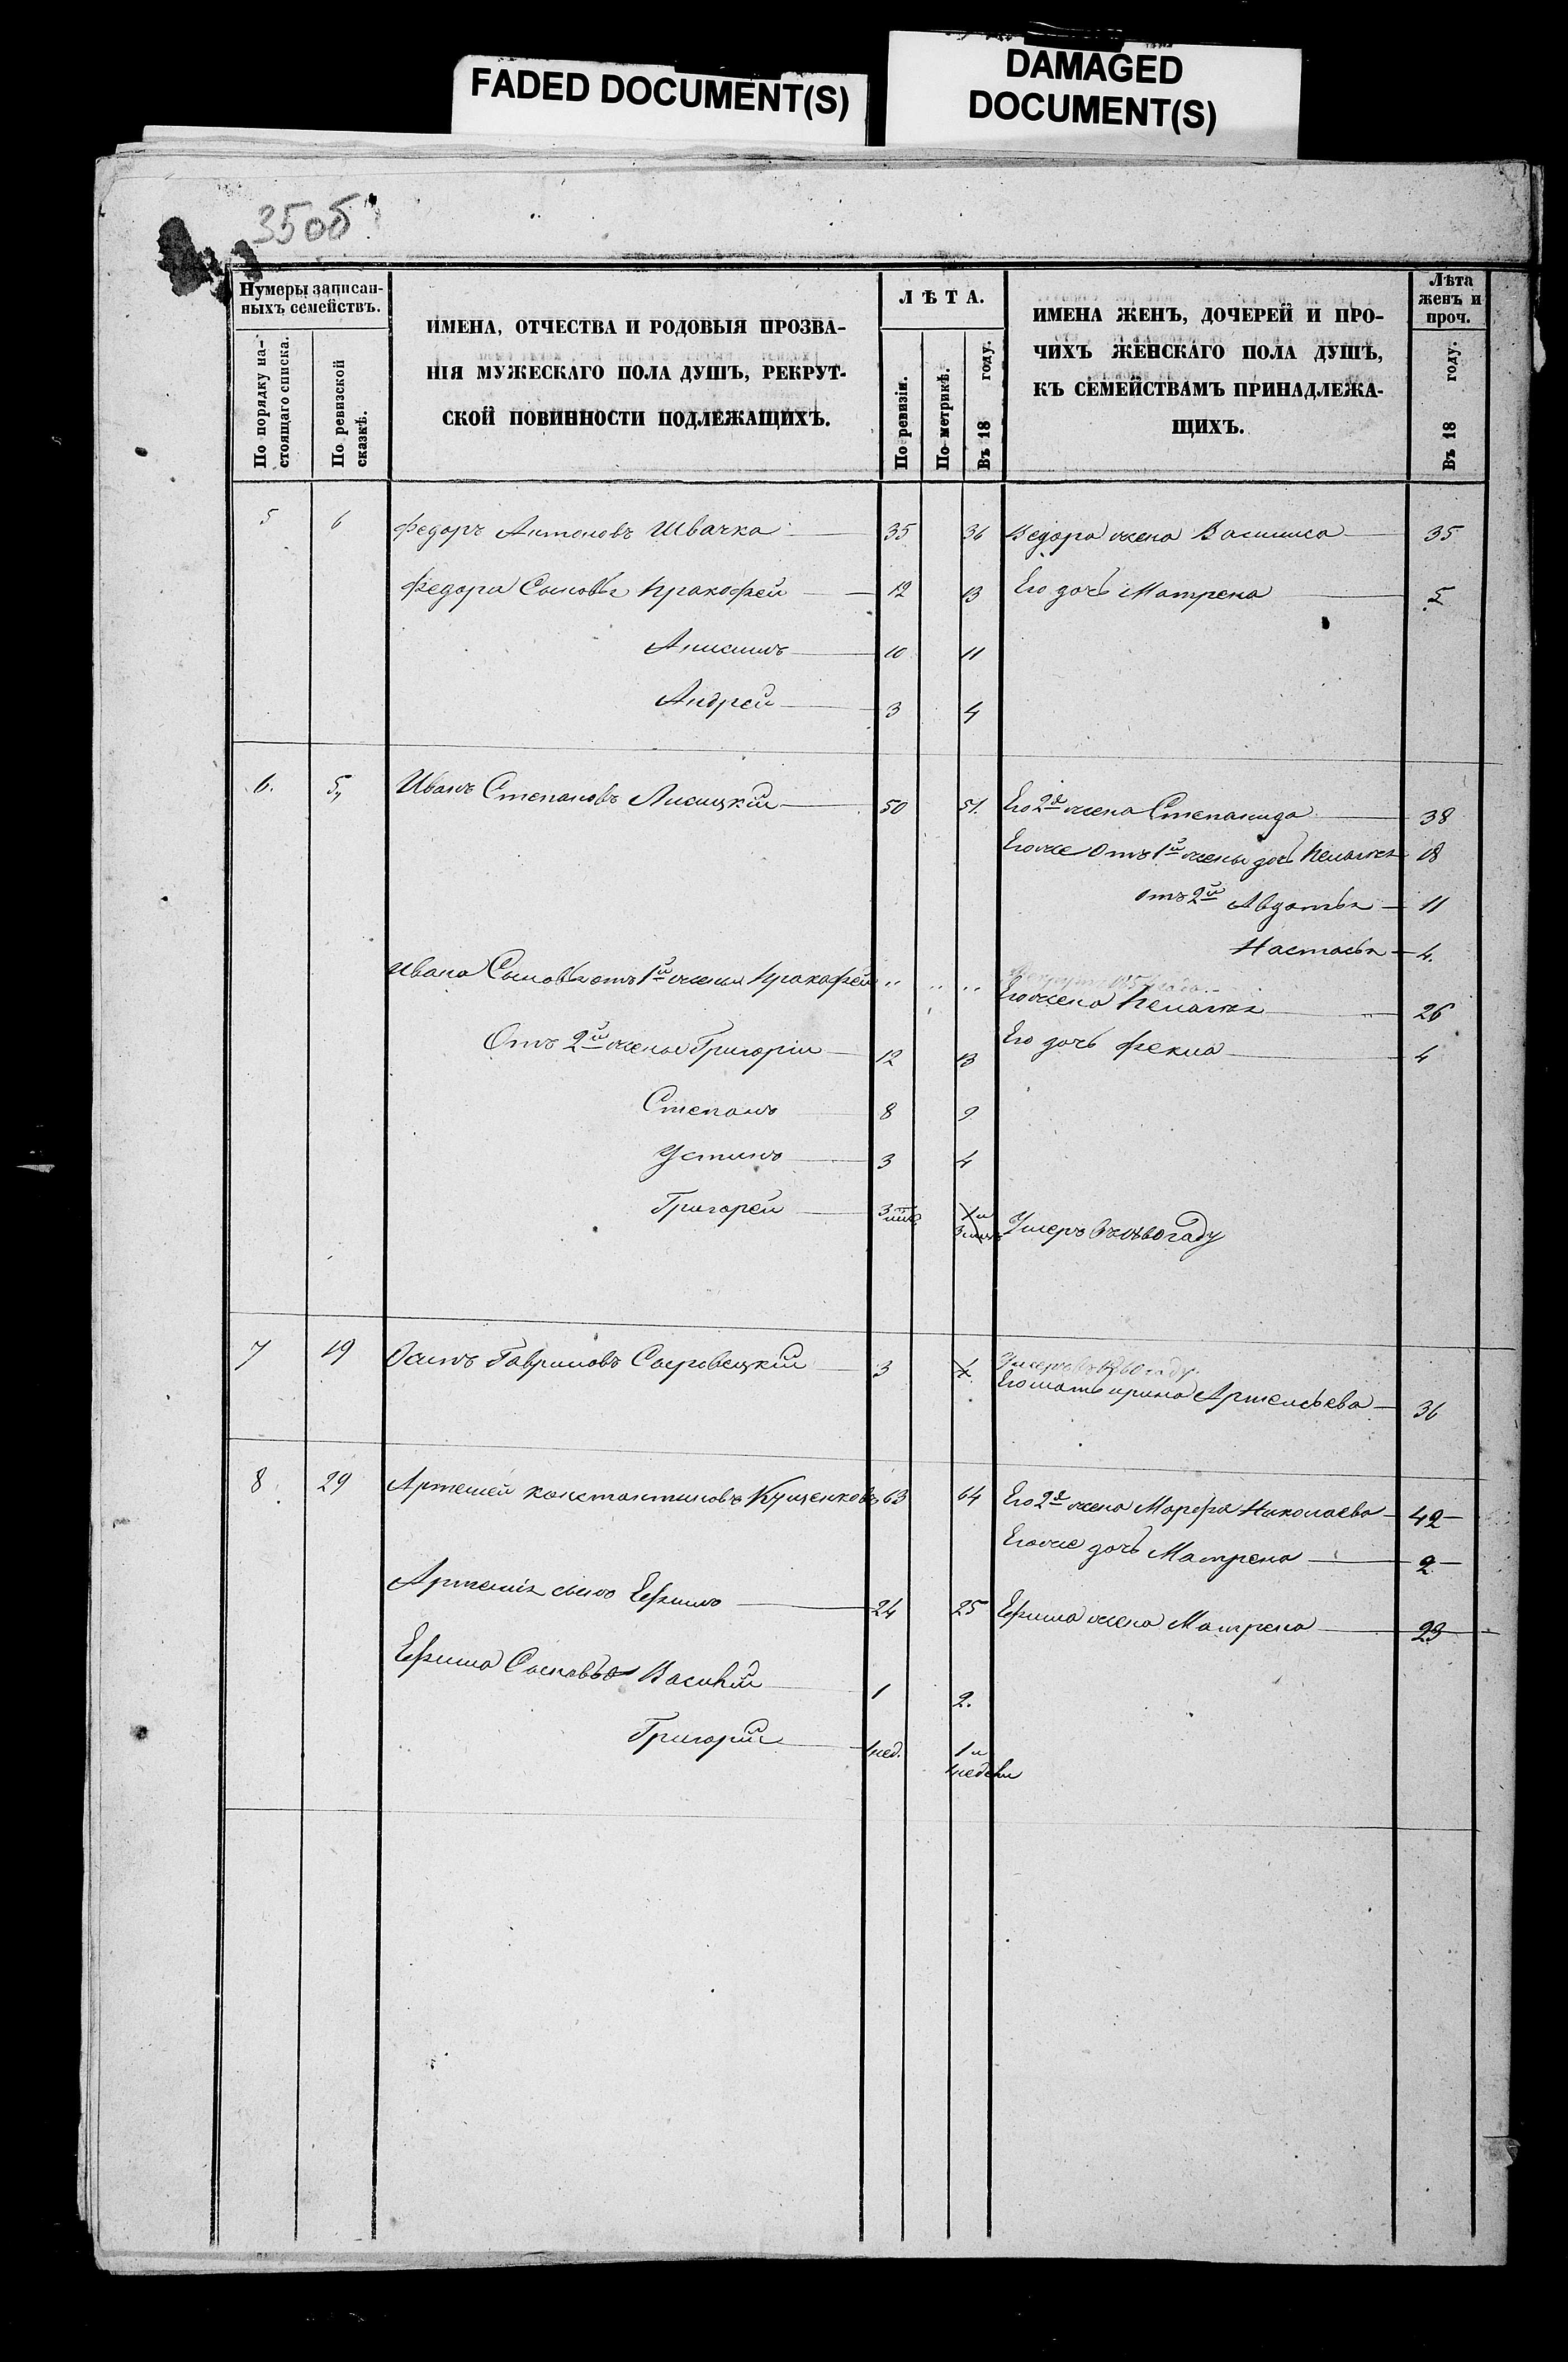 FADED DOCUMENT(S)
DAMAGED
DOCUMENT(S)
35об.
Нумеры записан-
ныхъ семействъ.
По порядку на-
стоящаго списка.
По ревизской
сказкѣ.
ИМЕНА, ОТЧЕСТВА И РОДОВЫЯ ПРОЗВА-
НІЯ МУЖЕСКАГО ПОЛА ДУШЪ, РЕКРУТ-
СКОЙ ПОВИННОСТИ ПОДЛЕЖАЩИХЪ.
ЛѢТА.
По ревизіи.
По метрикѣ.
Въ 18 году.
ИМЕНА ЖЕНЪ, ДОЧЕРЕЙ И ПРО-
ЧИХЪ ЖЕНСКАГО ПОЛА ДУШЪ,
КЪ СЕМЕЙСТВАМЪ ПРИНАДЛЕЖА-
ЩИХЪ.
Лѣта
женъ и
проч.
Въ 18 году.
5 6 Федоръ Антоновъ Швачка 35 36 Федора жена Василиса 35
Федора Сыновья Пракофей 12 13 Его дочь Матрена 5
Анисимъ 10 11
Андрей 3 4
6. 5, Иванъ Степановъ Лисицкій 50 51. Его 2я жена Степанида 38
Егоже Отъ 1й жены дочь Пелагея 18
отъ 2й Авдотья 11
Настасья 4.
Ивана Сыновья отъ 1й жены Пракофей " " "
Его жена Пелагея 26
Отъ 2й жены Григорій 12 13 Его дочь Фекла 4
Степанъ 8 9
Устинъ 3 4
Григорей 3 мѣс. 1 и
3 мѣс. Умеръ въ 1860 году
7 19 Осипъ Гавриловъ Сыровецкій 3 4 Умеръ въ 1860 году.
Его мать Ирина Артемьева 36
8. 29 Артемей Константиновъ Кущенковъ 63 64 Его 2я жена Марфа Николаева 42
Егоже дочь Матрена 2
Артемія сынъ Ефимъ 24 25 Ефима жена Матрена 23
Ефима Сыновья Василій 1 2.
Григорій 1 нед. 1 и
1 недели